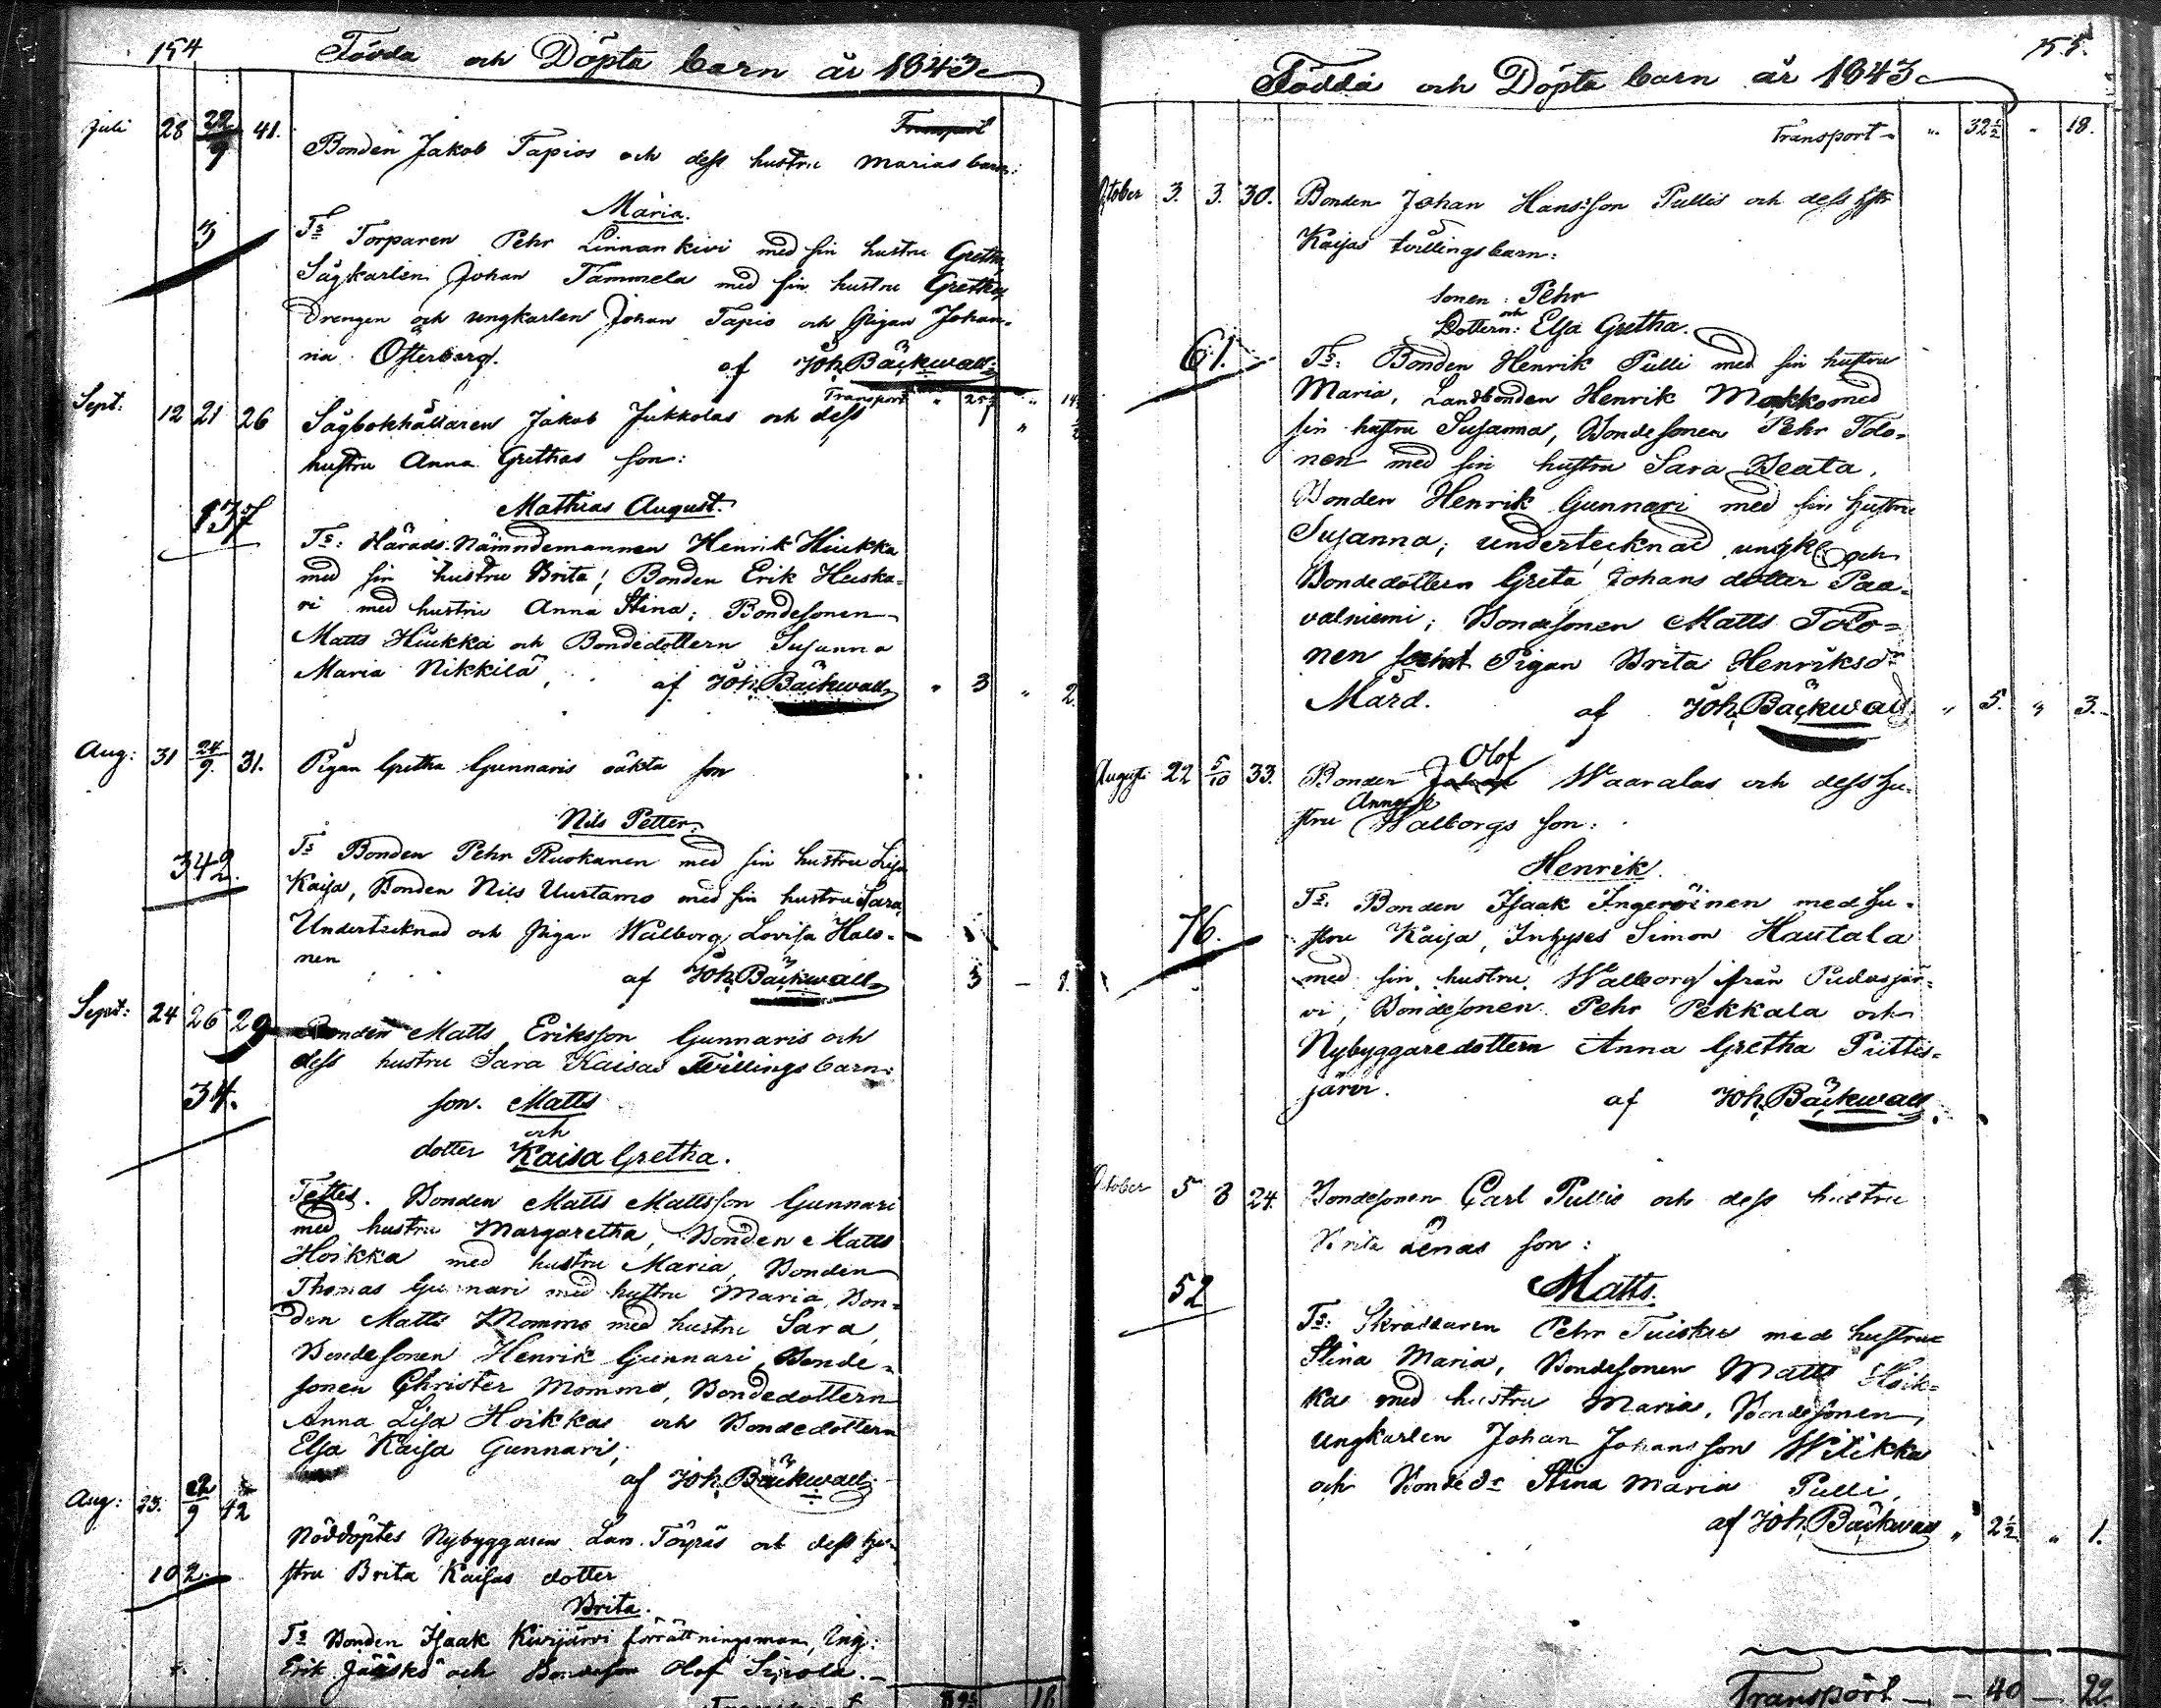 154
Födda och Döpta barn år 1843
Juli 28 22/9 41.
Transport
Bonden Jakob Tapios och dess hustru Marias barn:
Maria.
3
Ts Torparen Pehr Linnankivi med sin hustru Gretha,
Sågkarlen Johan Tammela med sin hustru Gretha,
Drengen och ungkarlen Johan Tapio och Pigan Johan-
na Österberg. af Joh. Bäckwall
Transport " 25½ " 14
Sept: 12 21 26 Sågbokhållaren Jakob Jukkolas och dess
hustru Anna Grethas son:
137
Mathias August.
Ts: Härads Nämndemannen Henrik Hiukka
med sin hustru Brita; Bonden Erik Huska-
ri med hustru Anna Stina; Bondesonen
Matts Hiukka och Bondedottern Susanna
Maria Nikkilä, af Joh. Bäckwall " 3 " 2.
Aug: 31 24/9. 31. Pigan Gretha Gunnaris oäkta son
Nils Petter.
342.
Ts Bonden Pehr Ruokanen med sin hustru Lisa
Kaisa, Bonden Nils Uurtamo med sin hustru Sara,
Undertecknad och Pigan Walborg Lovisa Halo-
nen
af Joh. Bäckwall 3
Sept: 24 26 29 Bonden Matts Eriksson Gunnaris och
dess hustru Sara Kaisas Tvillingsbarn:
34.
son. Matts
och
dotter Kaisa Gretha.
Testes. Bonden Matts Mattsson Gunnari
med hustru Margaretha, Bonden Matts
Hoikka med hustru Maria, Bonden
Thomas Gunnari med hustru Maria, Bon-
den Matts Mommo med hustru Sara,
Bondesonen Henrik Gunnari, Bonde-
sonen Christer Mommo, Bondedottern
Anna Lisa Hoikkas och Bondedottern
Elsa Kaisa Gunnaris,
af Joh. Bäckwall
Aug: 23. 9 42
Nöddöptes Nybyggaren Lars Töyräs och dess hu-
102.
stru Brita Kaisas dotter
Brita.
Ts Bonden Isaak Kivijärvi förrättningsman, Inh:
Erik Jääskö och Bondeson Olof Sipola.
Transport
155.
Födda och Döpta barn år 1843
Transport " 32½ " 18.
October 3. 3. 30. Bonden Johan Hansson Pullis och dess hstr
Kaisas tvillingsbarn:
sonen: Pehr
och
Dottern: Elsa Gretha.
61.
Ts: Bonden Henrik Pulli med sin hustru
Maria, Landbonden Henrik Mokko med
sin hustru Susanna, Bondesonen Pehr Tolo-
nen med sin hustru Sara Beata,
Bonden Henrik Gunnari med sin hustru
Susanna; undertecknad ungkl och
Bondedottern Greta Johans dotter Paa-
valniemi; Bondesonen Matts Tolo-
nen samt Pigan Brita Henriksdr
Mård. af Joh. Bäckwall " 5. " 3.
Olof
Augusti 22 5/10 33. Bonden Johan Waaralas och dess hu-
stru Walborgs son:
Henrik.
76.
Ts. Bonden Isaak Ingeröinen med hu-
stru Kaisa, Inhyses Simon Hautala
med sin hustru Walborg från Pudasjär-
vi, Bondesonen Pehr Pekkala och
Nybyggaredottern Anna Gretha Puttis-
järvi.
af Joh. Bäckwall
October 5 8 24. Bondesonen Carl Pullis och dess hustru
Brita Lenas son:
52
Matts.
Ts: Skräddaren Pehr Tuisku med hustru
Stina Maria, Bondesonen Matts Hoik-
ka med hustru Maria, Bondesonen,
ungkarlen Johan Johansson Wilikka
och Bondedr Stina Maria Pulli,
af Joh. Bäckwall " 2½ " 1.
Transport 40 22.